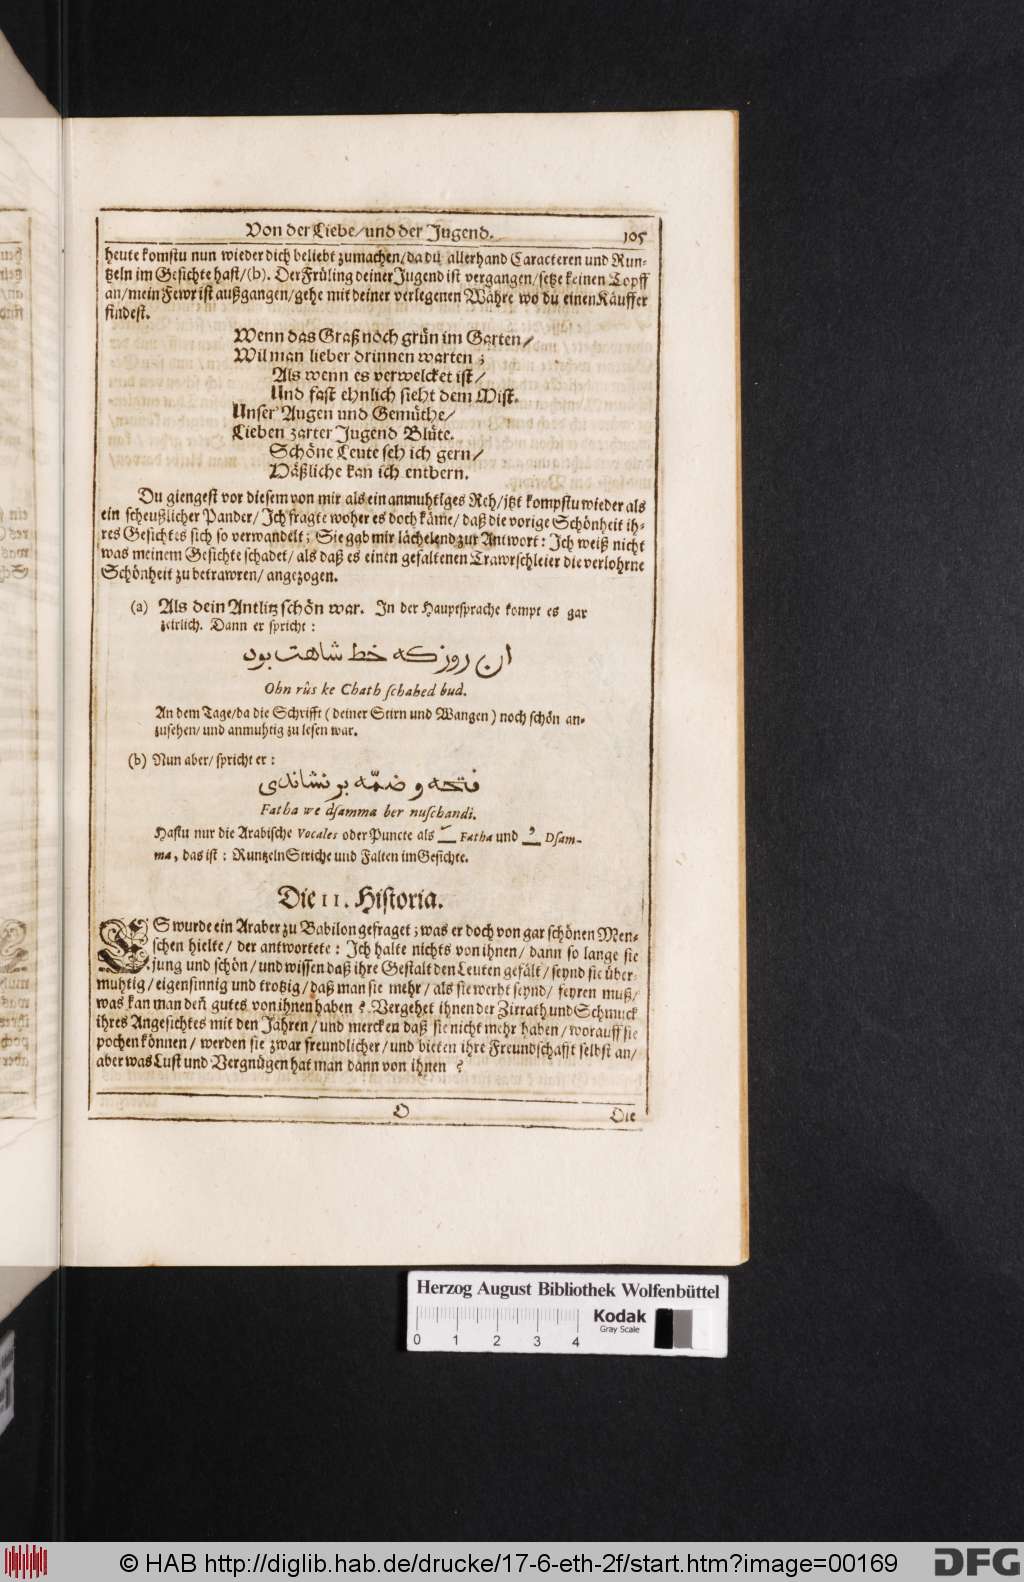 Von der Liebe/und der Jugend. 105
heute komstu nun wieder dich beliebt zumachen/da du allerhand Caracteren und Run-
tzeln im Gesichte hast/(b). Der Früling deiner Jugend ist vergangen/setze keinen Topff
an/mein Fewr ist außgangen/gehe mit deiner verlegenen Wahre wo du einen Käuffer
findest.
Wenn das Graß noch grün im Garten/
Wil man lieber drinnen warten;
Als wenn es verwelcket ist/
Und fast ehnlich sieht dem Mist.
Unser Augen und Gemüthe/
Lieben zarter Jugend Blüte.
Schöne Leute seh ich gern/
Häßliche kan ich entbern.
Du giengest vor diesem von mir als ein anmuhtiges Reh/jtzt kompstu wieder als
ein scheußlicher Pander/Ich fragte woher es doch käme/daß die vorige Schönheit ih-
res Gesichtes sich so verwandelt; Sie gab mir lächelend zur Antwort: Ich weiß nicht
was meinem Gesichte schadet/als daß es einen gefaltenen Trawrschleier die verlohrne
Schönheit zu betrawren/angezogen.
(a) Als dein Antlitz schön war. In der Hauptsprache kompt es gar
zeirlich. Dann er spricht:
ان روز که خط شاهت بود
Ohn rûs ke Chath schahed bud.
An dem Tage/da die Schrifft (deiner Stirn und Wangen) noch schön an-
zusehen/und anmuhtig zu lesen war.
(b) Nun aber/spricht er:
فتحه و ضمّه بر نشاندی
Fatha we dsamma ber nuschandi.
Hastu nur die Arabische Vocales oder Puncte als ـَ Fatha und ـُ Dsam-
ma, das ist: Runtzeln Striche und Falten im Gesichte.
Die 11. Historia.
ES wurde ein Araber zu Babilon gefraget; was er doch von gar schönen Men-
schen hielte/der antwortete: Ich halte nichts von ihnen/dann so lange sie
jung und schön/und wissen daß ihre Gestalt den Leuten gefält/seynd sie über-
muhtig/eigensinnig und trotzig/daß man sie mehr/als sie werht seynd/feyren muß/
was kan man deñ gutes von ihnen haben? Vergehet ihnen der Zirrath und Schmuck
ihres Angesichtes mit den Jahren/und mercken daß sie nicht mehr haben/worauff sie
pochen können/werden sie zwar freundlicher/und bieten ihre Freundschafft selbst an/
aber was Lust und Vergnügen hat man dann von ihnen?
O Die
Herzog August Bibliothek Wolfenbüttel
Kodak
Gray Scale
0 1 2 3 4
© HAB http://diglib.hab.de/drucke/17-6-eth-2f/start.htm?image=00169
DFG